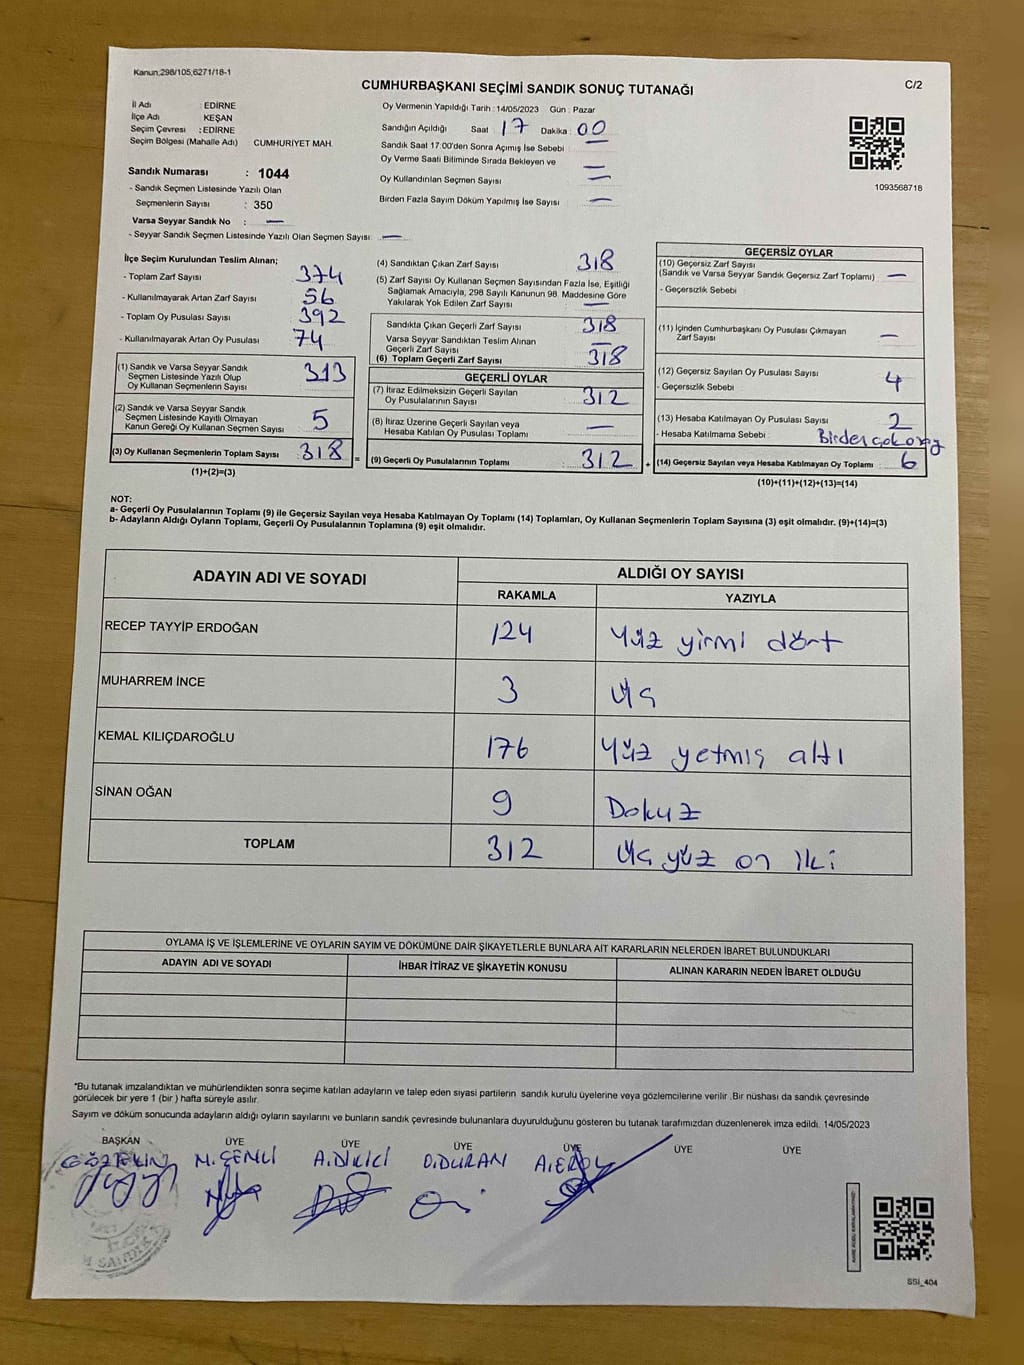 Kanun;298/105;6271/18-1
C/2
CUMHURBAŞKANI SEÇİMİ SANDIK SONUÇ TUTANAĞI
İl Adı : EDİRNE
İlçe Adı KEŞAN
Seçim Çevresi : EDİRNE
Seçim Bölgesi (Mahalle Adı) CUMHURİYET MAH.
Sandık Numarası : 1044
- Sandık Seçmen Listesinde Yazılı Olan
Seçmenlerin Sayısı : 350
Varsa Seyyar Sandık No : —
- Seyyar Sandık Seçmen Listesinde Yazılı Olan Seçmen Sayısı: —
Oy Vermenin Yapıldığı Tarih : 14/05/2023 Gün : Pazar
Sandığın Açıldığı Saat 17 Dakika : 00
Sandık Saat 17:00'den Sonra Açımış İse Sebebi —
Oy Verme Saati Bitiminde Sırada Bekleyen ve
Oy Kullandırılan Seçmen Sayısı —
Birden Fazla Sayım Döküm Yapılmış İse Sayısı —
1093568718
İlçe Seçim Kurulundan Teslim Alınan;
- Toplam Zarf Sayısı 374
- Kullanılmayarak Artan Zarf Sayısı 56
- Toplam Oy Pusulası Sayısı 392
- Kullanılmayarak Artan Oy Pusulası 74
(1) Sandık ve Varsa Seyyar Sandık
Seçmen Listesinde Yazılı Olup
Oy Kullanan Seçmenlerin Sayısı 313
(2) Sandık ve Varsa Seyyar Sandık
Seçmen Listesinde Kayıtlı Olmayan
Kanun Gereği Oy Kullanan Seçmen Sayısı 5
(3) Oy Kullanan Seçmenlerin Toplam Sayısı 318 =
(1)+(2)=(3)
(4) Sandıktan Çıkan Zarf Sayısı 318
(5) Zarf Sayısı Oy Kullanan Seçmen Sayısından Fazla İse, Eşitliği
Sağlamak Amacıyla, 298 Sayılı Kanunun 98. Maddesine Göre
Yakılarak Yok Edilen Zarf Sayısı —
Sandıkta Çıkan Geçerli Zarf Sayısı 318
Varsa Seyyar Sandıktan Teslim Alınan
Geçerli Zarf Sayısı —
(6) Toplam Geçerli Zarf Sayısı 318
GEÇERLİ OYLAR
(7) İtiraz Edilmeksizin Geçerli Sayılan
Oy Pusulalarının Sayısı 312
(8) İtiraz Üzerine Geçerli Sayılan veya
Hesaba Katılan Oy Pusulası Toplamı —
(9) Geçerli Oy Pusulalarının Toplamı 312 +
GEÇERSİZ OYLAR
(10) Geçersiz Zarf Sayısı
(Sandık ve Varsa Seyyar Sandık Geçersiz Zarf Toplamı) —
- Geçersizlik Sebebi
(11) İçinden Cumhurbaşkanı Oy Pusulası Çıkmayan
Zarf Sayısı —
(12) Geçersiz Sayılan Oy Pusulası Sayısı 4
- Geçersizlik Sebebi
(13) Hesaba Katılmayan Oy Pusulası Sayısı 2
- Hesaba Katılmama Sebebi : Birden çok oray
(14) Geçersiz Sayılan veya Hesaba Katılmayan Oy Toplamı 6
(10)+(11)+(12)+(13)=(14)
NOT:
a- Geçerli Oy Pusulalarının Toplamı (9) ile Geçersiz Sayılan veya Hesaba Katılmayan Oy Toplamı (14) Toplamları, Oy Kullanan Seçmenlerin Toplam Sayısına (3) eşit olmalıdır. (9)+(14)=(3)
b- Adayların Aldığı Oyların Toplamı, Geçerli Oy Pusulalarının Toplamına (9) eşit olmalıdır.
ADAYIN ADI VE SOYADI ALDIĞI OY SAYISI
RAKAMLA YAZIYLA
RECEP TAYYİP ERDOĞAN 124 Yüz yirmi dört
MUHARREM İNCE 3 üç
KEMAL KILIÇDAROĞLU 176 Yüz yetmiş altı
SİNAN OĞAN 9 Dokuz
TOPLAM 312 üç yüz on iki
OYLAMA İŞ VE İŞLEMLERİNE VE OYLARIN SAYIM VE DÖKÜMÜNE DAİR ŞİKAYETLERLE BUNLARA AİT KARARLARIN NELERDEN İBARET BULUNDUKLARI
ADAYIN ADI VE SOYADI İHBAR İTİRAZ VE ŞİKAYETİN KONUSU ALINAN KARARIN NEDEN İBARET OLDUĞU
"Bu tutanak imzalandıktan ve mühürlendikten sonra seçime katılan adayların ve talep eden siyasi partilerin sandık kurulu üyelerine veya gözlemcilerine verilir .Bir nüshası da sandık çevresinde
görülecek bir yere 1 (bir ) hafta süreyle asılır.
Sayım ve döküm sonucunda adayların aldığı oyların sayılarını ve bunların sandık çevresinde bulunanlara duyurulduğunu gösteren bu tutanak tarafımızdan düzenlenerek imza edildi. 14/05/2023
BAŞKAN ÜYE ÜYE ÜYE ÜYE ÜYE ÜYE
GÖZTEKİN N.ŞENLİ A.DİKİCİ O.DURAN A.EROL
SSİ_404